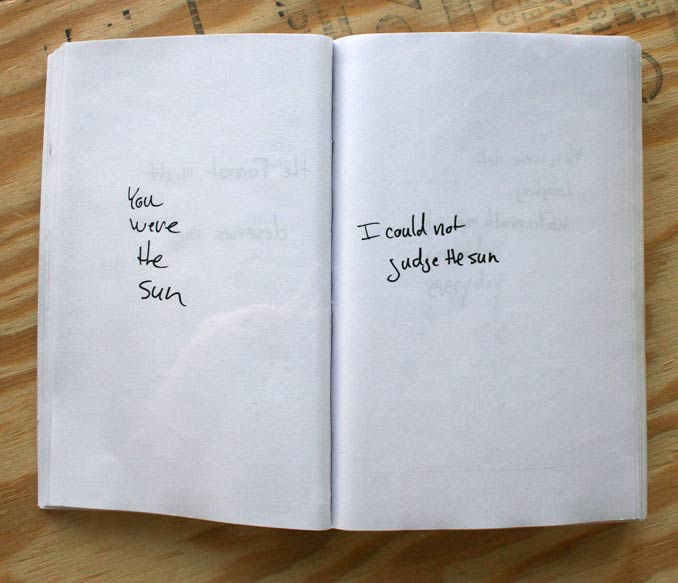 You
were
the
sun
I could not
judge the sun